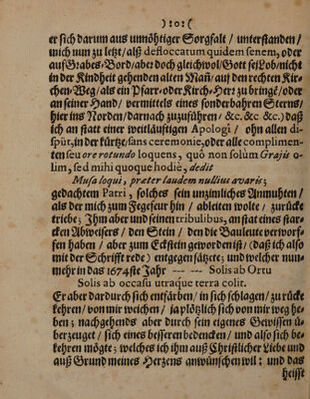 ):o:(
er sich darum aus unnöhtiger Sorgfalt / unterstanden /
mich nun zu letzt/ alß defloccatum quidem senem, oder
auf Grabes-Bord/ aber doch gleichwol/ Gott seÿ Lob/ nicht
in der Kindheit gehenden alten Mañ/ auf den rechten Kir-
chen-Weg/ als ein Pfarr-oder Kirch-Herr zu bringē/ oder
an seiner Hand/ vermittels eines sonderbahren Sterns/
hier ins Norden/ darnach zuzuführen/ &c. &c. &c.) daß
ich an statt einer weitläuftigen Apologi / ohn allen di-
spüt, in der kürtze, sans ceremonie, oder alle complimen-
ten seu ore rotundo loquens, quô non solùm Grajis o-
lim, sed mihi quoque hodiè, dedit
Musa loqui, præter laudem nullius avaris;
gedachtem Patri, solches sein unzimliches Anmuhten /
als der mich zum Fegefeur hin / ableiten wolte / zurücke
triebe; Ihm aber und seinen tribulibus, an stat eines star-
cken Abweisers / den Stein / den die Bauleute verworf-
fen haben / aber zum Eckstein geworden ist/ (daß ich also
mit der Schrifft rede) entgegen sätzte; und welcher nun-
mehr in das 1674ste Jahr — — Solis ab Ortu
Solis ab occasu utraque terra colit.
Er aber dardurch sich entfärben/ in sich schlagen/ zu rücke
kehren / von mir weichen / ja plötzlich sich von mir weg he-
ben; nachgehends aber durch sein eigenes Gewissen ü-
berzeuget / sich eines besseren bedencken / und also sich be-
kehren mögte; welches ich ihm auß Christlicher Liebe und
auß Grund meines Herzens anwünschen wil: und das
heisst